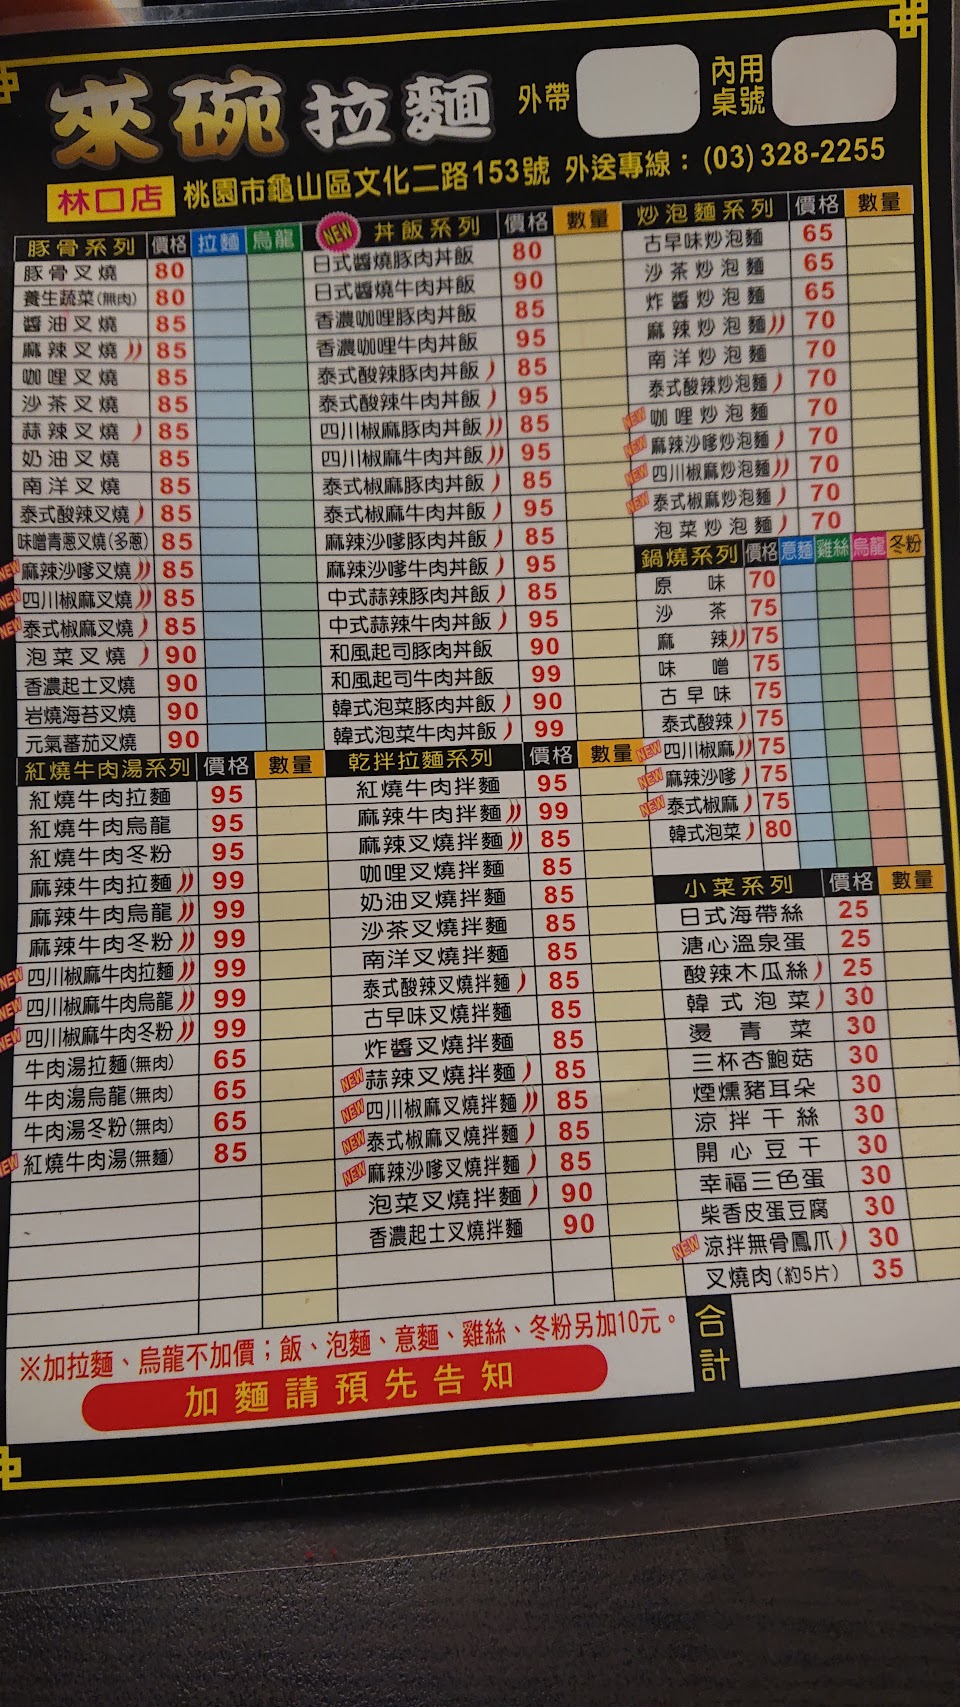 來碗拉麵 外帶 內用桌號
林口店 桃園市龜山區文化二路153號 外送專線：(03) 328-2255
豚骨系列 價格 拉麵 烏龍
豚骨叉燒 80
養生蔬菜(無肉) 80
醬油叉燒 85
麻辣叉燒 85
咖哩叉燒 85
沙茶叉燒 85
蒜辣叉燒 85
奶油叉燒 85
南洋叉燒 85
泰式酸辣叉燒 85
味噌青蔥叉燒(多蔥) 85
NEW 麻辣沙嗲叉燒 85
NEW 四川椒麻叉燒 85
NEW 泰式椒麻叉燒 85
泡菜叉燒 90
香濃起士叉燒 90
岩燒海苔叉燒 90
元氣蕃茄叉燒 90
紅燒牛肉湯系列 價格 數量
紅燒牛肉拉麵 95
紅燒牛肉烏龍 95
紅燒牛肉冬粉 95
麻辣牛肉拉麵 99
麻辣牛肉烏龍 99
麻辣牛肉冬粉 99
NEW 四川椒麻牛肉拉麵 99
NEW 四川椒麻牛肉烏龍 99
NEW 四川椒麻牛肉冬粉 99
牛肉湯拉麵(無肉) 65
牛肉湯烏龍(無肉) 65
牛肉湯冬粉(無肉) 65
NEW 紅燒牛肉湯(無麵) 85
NEW 丼飯系列 價格 數量
日式醬燒豚肉丼飯 80
日式醬燒牛肉丼飯 90
香濃咖哩豚肉丼飯 85
香濃咖哩牛肉丼飯 95
泰式酸辣豚肉丼飯 85
泰式酸辣牛肉丼飯 95
四川椒麻豚肉丼飯 85
四川椒麻牛肉丼飯 95
泰式椒麻豚肉丼飯 85
泰式椒麻牛肉丼飯 95
麻辣沙嗲豚肉丼飯 85
麻辣沙嗲牛肉丼飯 95
中式蒜辣豚肉丼飯 85
中式蒜辣牛肉丼飯 95
和風起司豚肉丼飯 90
和風起司牛肉丼飯 99
韓式泡菜豚肉丼飯 90
韓式泡菜牛肉丼飯 99
乾拌拉麵系列 價格 數量
紅燒牛肉拌麵 95
麻辣牛肉拌麵 99
麻辣叉燒拌麵 85
咖哩叉燒拌麵 85
奶油叉燒拌麵 85
沙茶叉燒拌麵 85
南洋叉燒拌麵 85
泰式酸辣叉燒拌麵 85
古早味叉燒拌麵 85
炸醬叉燒拌麵 85
NEW 蒜辣叉燒拌麵 85
NEW 四川椒麻叉燒拌麵 85
NEW 泰式椒麻叉燒拌麵 85
NEW 麻辣沙嗲叉燒拌麵 85
泡菜叉燒拌麵 90
香濃起士叉燒拌麵 90
炒泡麵系列 價格 數量
古早味炒泡麵 65
沙茶炒泡麵 65
炸醬炒泡麵 65
麻辣炒泡麵 70
南洋炒泡麵 70
泰式酸辣炒泡麵 70
NEW 咖哩炒泡麵 70
NEW 麻辣沙嗲炒泡麵 70
NEW 四川椒麻炒泡麵 70
NEW 泰式椒麻炒泡麵 70
泡菜炒泡麵 70
鍋燒系列 價格 意麵 雞絲 烏龍 冬粉
原味 70
沙茶 75
麻辣 75
味噌 75
古早味 75
泰式酸辣 75
NEW 四川椒麻 75
NEW 麻辣沙嗲 75
NEW 泰式椒麻 75
韓式泡菜 80
小菜系列 價格 數量
日式海帶絲 25
溏心溫泉蛋 25
酸辣木瓜絲 25
韓式泡菜 30
燙青菜 30
三杯杏鮑菇 30
煙燻豬耳朵 30
涼拌干絲 30
開心豆干 30
幸福三色蛋 30
柴香皮蛋豆腐 30
NEW 涼拌無骨鳳爪 30
叉燒肉(約5片) 35
※加拉麵、烏龍不加價；飯、泡麵、意麵、雞絲、冬粉另加10元。
加麵請預先告知
合計